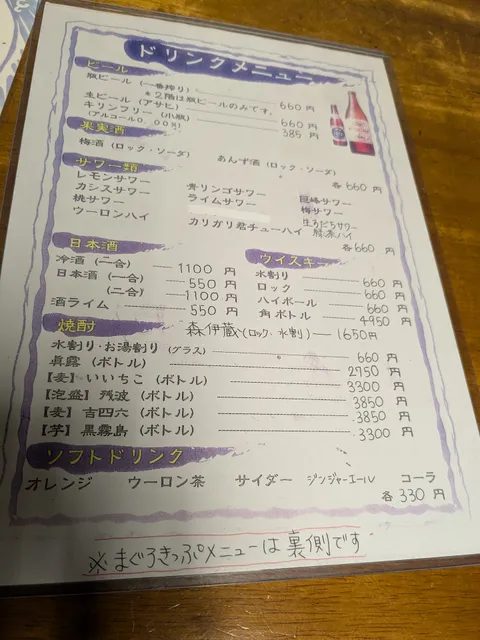 ドリンクメニュー
ビール
瓶ビール (一番搾り) 660円
※2階は瓶ビールのみです。
生ビール (アサヒ) 660円
キリンフリー (小瓶) 385円
(アルコール0.00%)
果実酒
梅酒 (ロック・ソーダ) あんず酒 (ロック・ソーダ)
各660円
サワー類
レモンサワー 青リンゴサワー 巨峰サワー
カシスサワー ライムサワー 梅サワー
桃サワー 生すだちサワー
ウーロンハイ ガリガリ君チューハイ 緑茶ハイ
各660円
日本酒
冷酒 (二合) 1100円
日本酒 (一合) 550円
(二合) 1100円
酒ライム 550円
ウイスキー
水割り 660円
ロック 660円
ハイボール 660円
角ボトル 4950円
焼酎
森伊蔵(ロック・水割) 1650円
水割り・お湯割り (グラス) 660円
眞露 (ボトル) 2750円
【麦】いいちこ (ボトル) 3300円
【泡盛】残波 (ボトル) 3850円
【麦】吉四六 (ボトル) 3850円
【芋】黒霧島 (ボトル) 3300円
ソフトドリンク
オレンジ ウーロン茶 サイダー ジンジャーエール コーラ
各330円
※まぐろきっぷメニューは裏側です